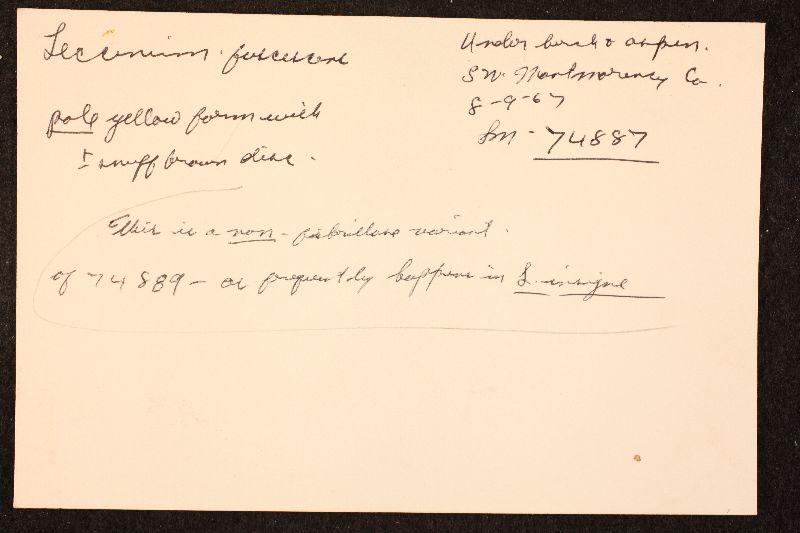 Leccinum fuscescens
Under birch & aspen.
SW. Montmorency Co.
8-9-67
Sm - 74887
pale yellow form with
± snuff brown disc.
This is a non-fibrillose variant
of 74889 - as frequently happens in L. insigne